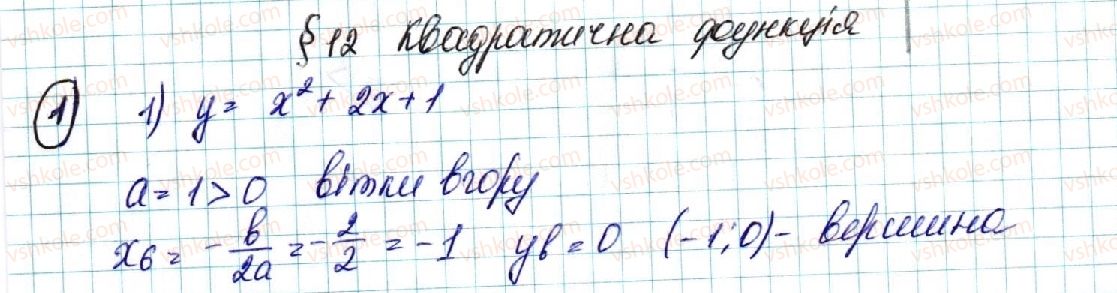 § 12 Квадратична функція
1 1) y = x² + 2x + 1
a = 1 > 0 вітки вгору
xв = -b/2a = -2/2 = -1 yв = 0 (-1; 0) - вершина